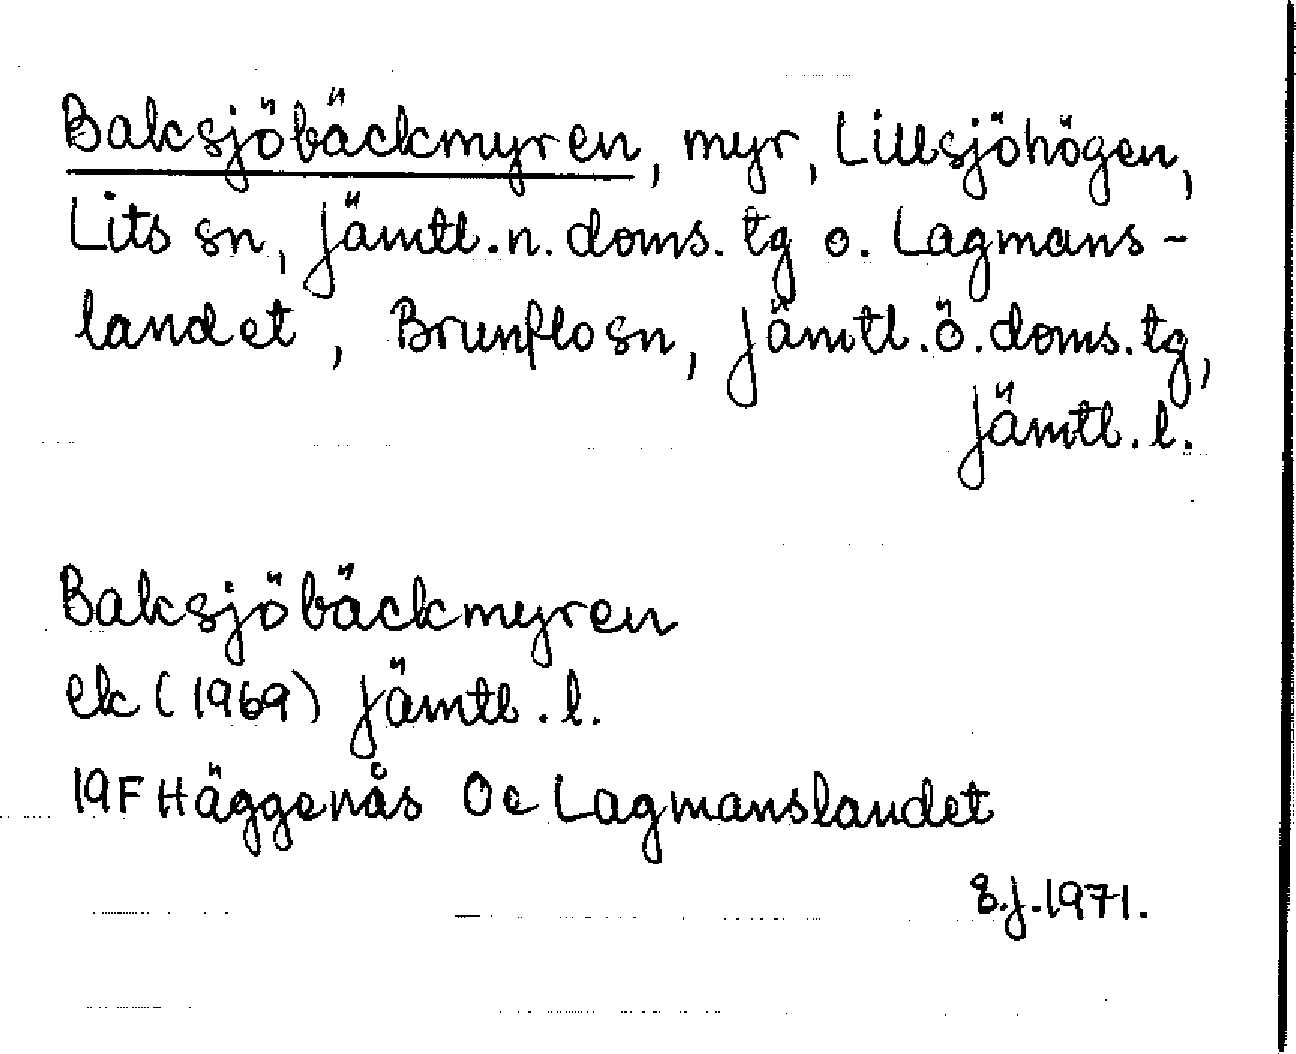 Baksjöbäckmyren, myr, Lillsjöhögen,
Lits sn, Jämtl.n.doms.tg o. Lagmans-
landet, Brunflo sn, Jämtl.ö.doms.tg,
Jämtl.l.
Baksjöbäckmyren
ek (1969) Jämtl.l.
19F Häggenås 0c Lagmanslandet
J.1971.